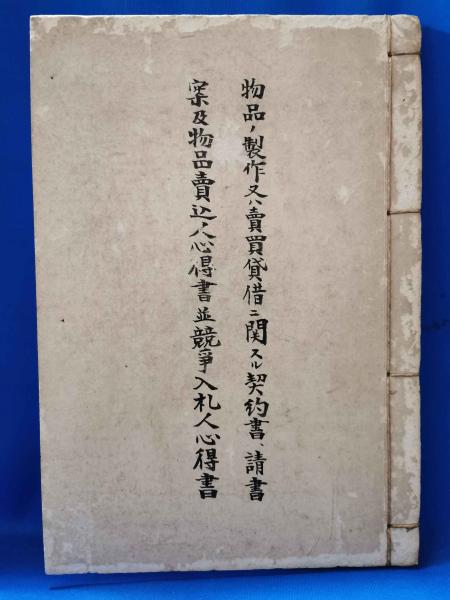 物品ノ製作又ハ賣買貸借ニ関スル契約書、請書
案及物品賣込人心得書並競爭入札人心得書